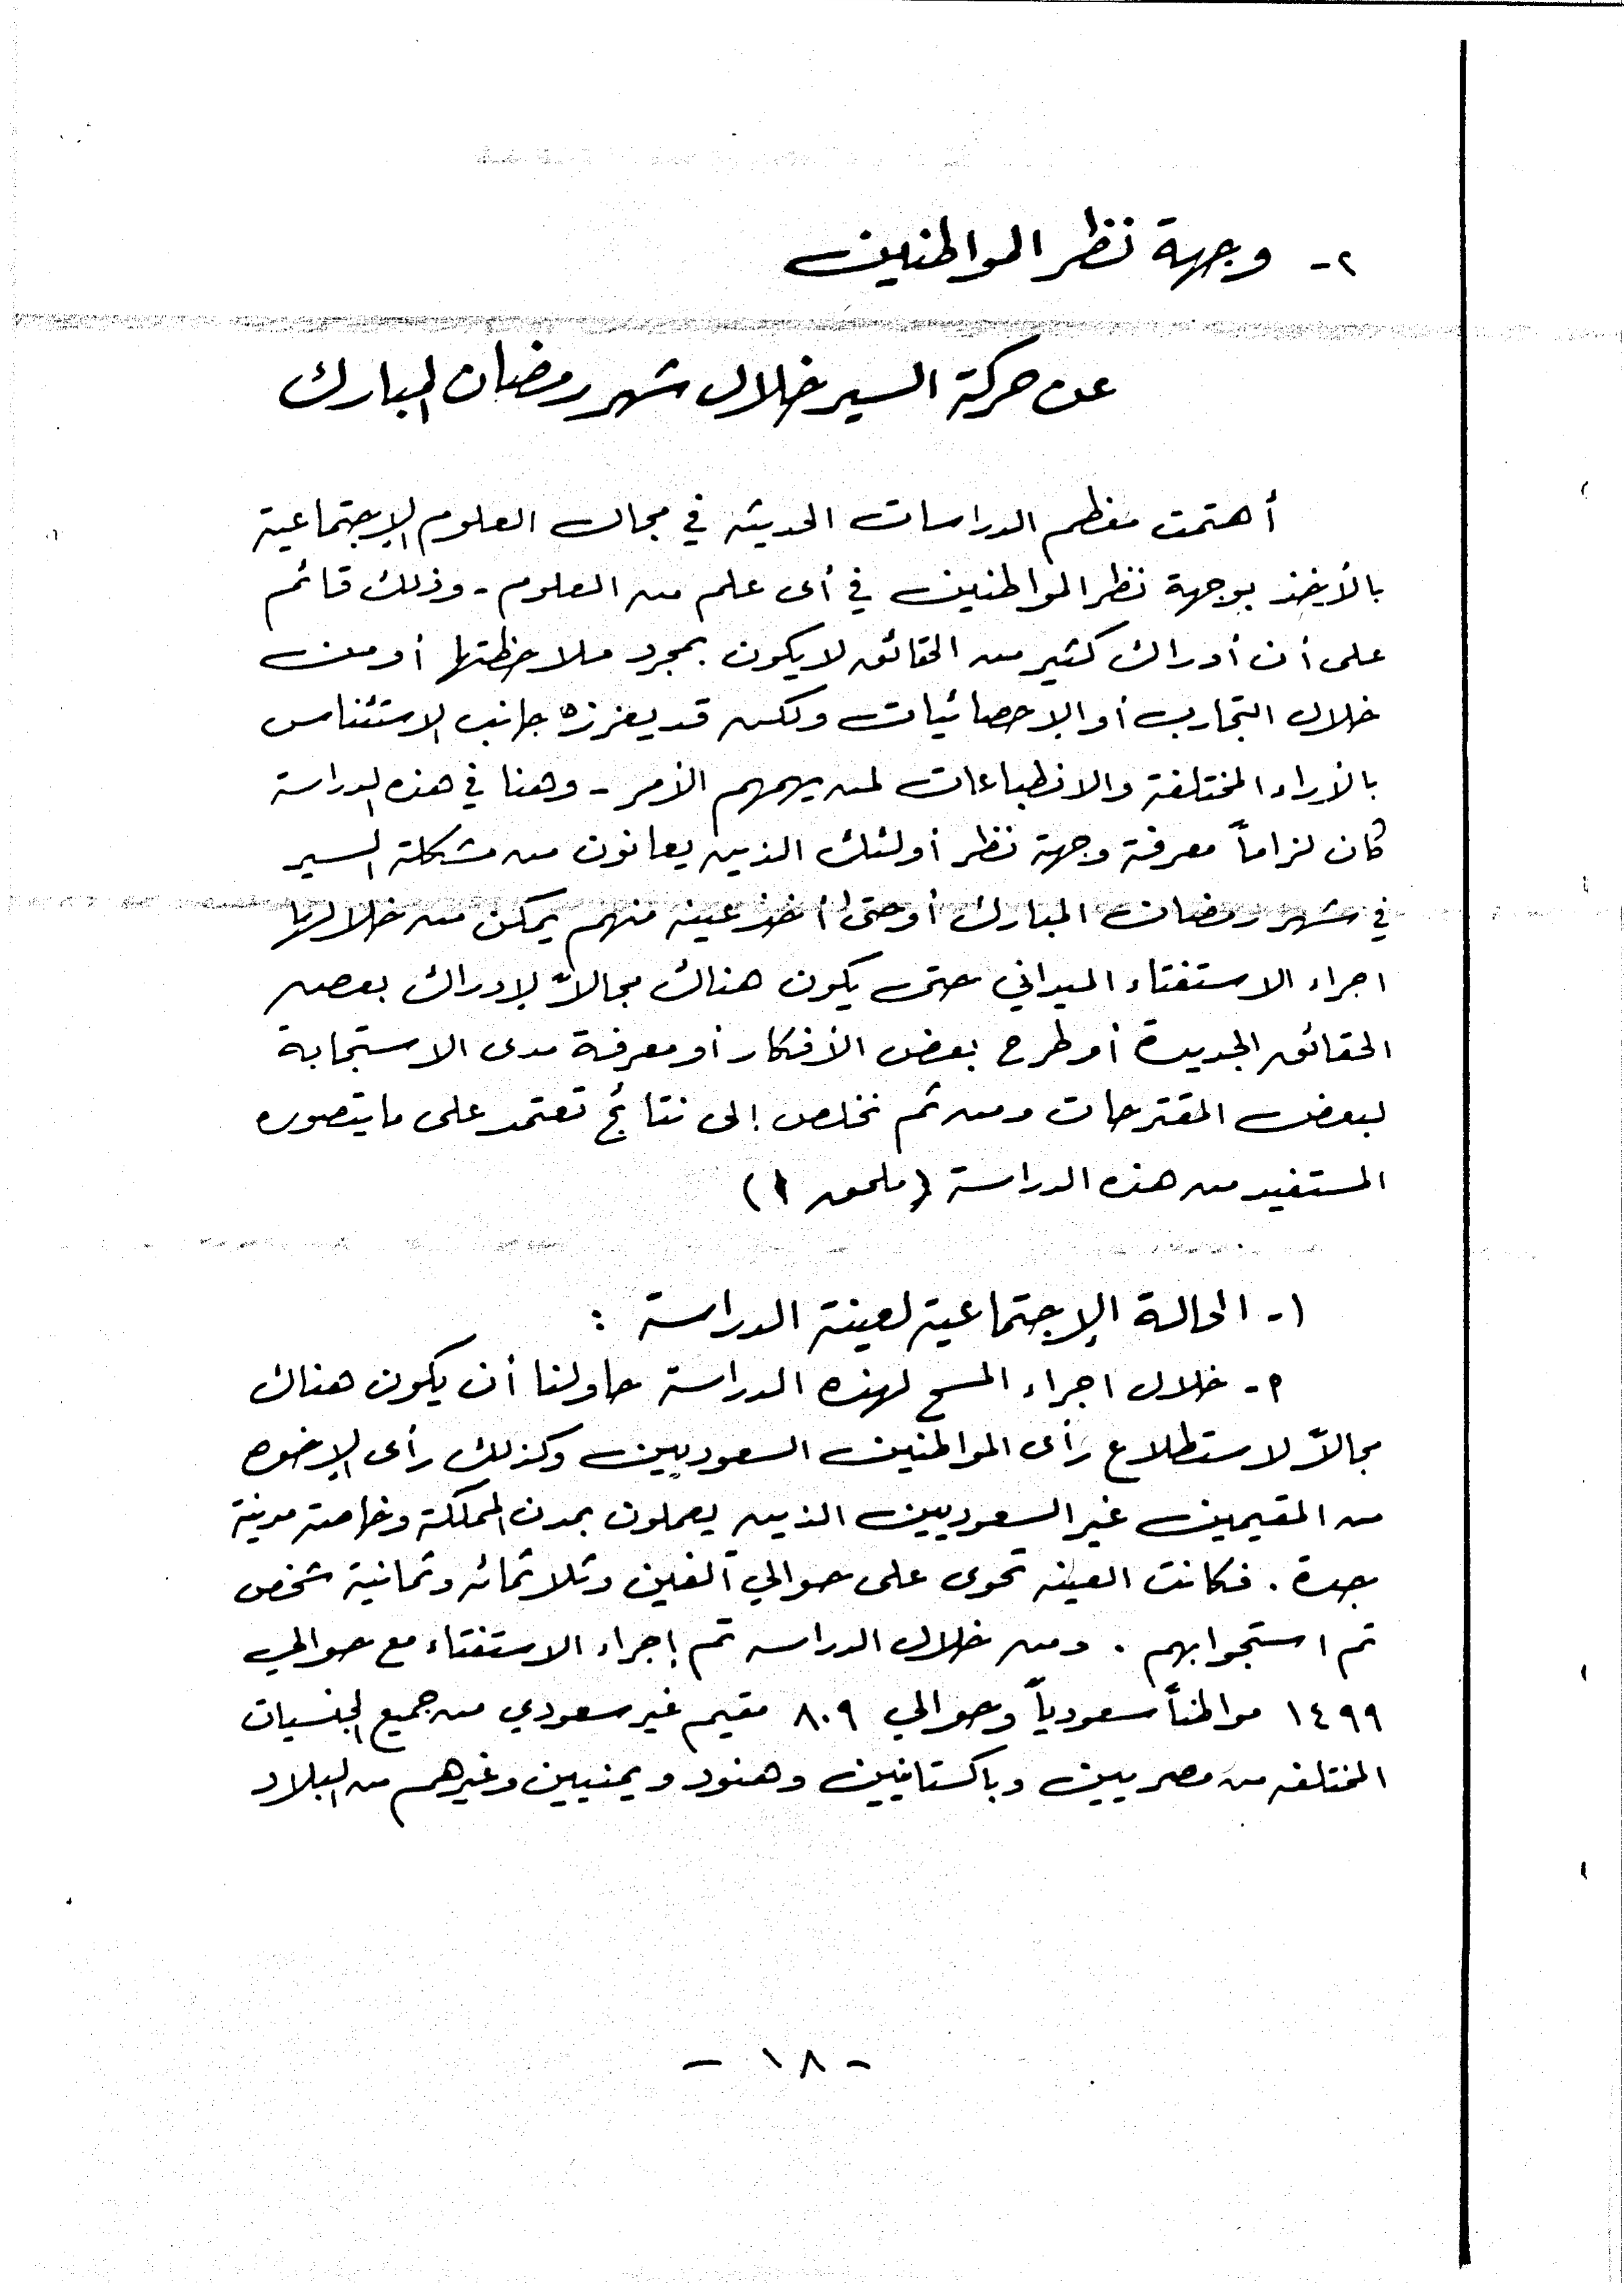 ٢- وجهة نظر المواطنين
عن حركة السير خلال شهر رمضان المبارك
أهتمت معظم الدراسات الحديثه في مجال العلوم الإجتماعية
بالأخذ بوجهة نظر المواطنين في أى علم من العلوم - وذلك قائم
على أن أدراك كثير من الحقائق لا يكون بمجرد ملاحظتها أو من
خلال التجارب أو الإحصائيات ولكن قد يعززه جانب الاستئناس
بالأراء المختلفة والانطباعات لمن يهمهم الأمر - وهنا في هذه الدراسة
كان لزاماً معرفة وجهة نظر أولئك الذين يعانون من مشكلة السير
في شهر رمضان المبارك أو حتى أخذ عينه منهم يمكن من خلالها
اجراء الاستفتاء الميداني حتى يكون هناك مجالاً لإدراك بعض
الحقائق الجديدة أو طرح بعض الأفكار أو معرفة مدى الاستجابة
لبعض المقترحات ومن ثم نخلص إلى نتائج تعتمد على ما يتصوره
المستفيد من هذه الدراسة (ملحق ١)
١- الحالة الإجتماعية لعينة الدراسة :
٢- خلال اجراء المسح لهذه الدراسة حاولنا أن يكون هناك
مجالاً لاستطلاع رأى المواطنين السعوديين وكذلك رأى الإخوه
من المقيمين غير السعوديين الذين يعملون بمدن المملكة وخاصة مدينة
جدة . فكانت العينه تحوى على حوالي ألفين وثلاثمائه وثمانية شخص
تم استجوابهم . ومن خلال الدراسه تم إجراء الاستفتاء مع حوالي
١٤٩٩ مواطناً سعودياً وحوالي ٨٠٩ مقيم غير سعودي من جميع الجنسيات
المختلفه من مصريين وباكستانيين وهنود ويمنيين وغيرهم من البلاد
- ١٨ -